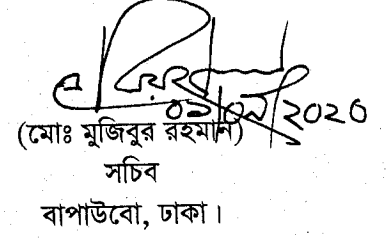 ০৯/০৯/২০২০
(মোঃ মুজিবুর রহমান)
সচিব
বাপাউবো, ঢাকা।